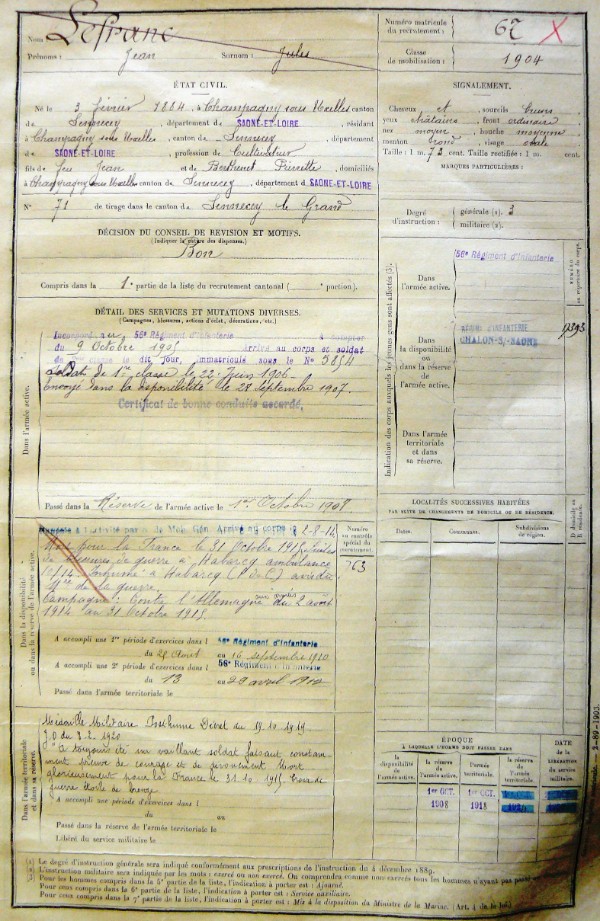 Nom Lefranc
Prénoms : Jean Surnom : Jules
Numéro matricule du recrutement : 67 X
Classe de mobilisation : 1904
ÉTAT CIVIL.
Né le 3 février 1884, à Champagny sous Uxelles canton
de Sennecey, département de SAÔNE-ET-LOIRE, résidant
à Champagny sous Uxelles, canton de Sennecey, département
de SAÔNE-ET-LOIRE, profession de Cultivateur
fils de feu Jean et de Berthenet Pierrette, domiciliés
à Champagny sous Uxelles canton de Sennecey, département d SAÔNE-ET-LOIRE
N° 71 de tirage dans le canton de Sennecey le Grand
SIGNALEMENT.
Cheveux et sourcils bruns
yeux châtains, front ordinaire
nez moyen, bouche moyenne
menton rond, visage ovale
Taille : 1 m. 72 cent. Taille rectifiée : 1 m. cent.
MARQUES PARTICULIÈRES :
Degré d'instruction : générale (1). 3
militaire (2).
DÉCISION DU CONSEIL DE REVISION ET MOTIFS.
(Indiquer la nature des dispenses.)
Bon
Compris dans la 1e partie de la liste du recrutement cantonal ( portion).
DÉTAIL DES SERVICES ET MUTATIONS DIVERSES.
(Campagnes, blessures, actions d'éclat, décorations, etc.)
Dans l'armée active.
Incorporé au 56e Régiment d'Infanterie à compter
du 9 Octobre 1905 Arrivé au corps et soldat
de classe le dit jour, immatriculé sous le N° 3854
Soldat de 1re classe le 22 Juin 1906.
Envoyé dans la disponibilité le 28 Septembre 1907.
Certificat de bonne conduite accordé.
Passé dans la Réserve de l'armée active le 1er Octobre 1908
Indication des corps auxquels les jeunes gens sont affectés (3).
Dans l'armée active.
56e Régiment d'Infanterie
NUMÉRO au répertoire du corps.
Dans la disponibilité ou dans la réserve de l'armée active.
D'INFANTERIE
CHALON-S/SAÔNE
Dans l'armée territoriale et dans sa réserve.
Dans la disponibilité ou dans la réserve de l'armée active.
Arrivé au corps le 2-8-14
Mort pour la France le 31 Octobre 1915
de blessures de guerre à Habarcq ambulance
Inhumé à Habarcq (P. de C.) avis du
de la guerre.
Campagne : Contre l'Allemagne du 2 août
1914 au 31 Octobre 1915.
Numéro au contrôle spécial du recrutement.
763
A accompli une 1re période d'exercices dans l 56e Régiment d'Infanterie
du 25 Août au 16 septembre 1910
A accompli une 2e période d'exercices dans l 56e Régiment d'Infanterie
du 13 au 29 avril 1912
Passé dans l'armée territoriale le
LOCALITÉS SUCCESSIVES HABITÉES
PAR SUITE DE CHANGEMENTS DE DOMICILE OU DE RÉSIDENCE.
Dates. Communes. Subdivisions de région. D domicile ou R résidence.
Dans l'armée territoriale et dans sa réserve.
Médaille Militaire Posthume Décret du 19.10.1919
J.O du 3.2.1920
"a toujours été un vaillant soldat faisant constam
ment preuve de courage et de dévouement Mort
glorieusement pour la France le 31.10.1915 Croix de
guerre étoile de bronze
A accompli une période d'exercices dans l
du au
Passé dans la réserve de l'armée territoriale le
Libéré du service militaire le
ÉPOQUE
À LAQUELLE L'HOMME DOIT PASSER DANS
DATE de la LIBÉRATION du service militaire.
la disponibilité de l'armée active.
la réserve de l'armée active.
l'armée territoriale.
la réserve de l'armée territoriale.
1er OCT. 1908
1er OCT. 1918
(1) Le degré d'instruction générale sera indiqué conformément aux prescriptions de l'instruction du 4 décembre 1889.
(2) L'instruction militaire sera indiquée par les mots : exercé ou non exercé.
Pour les hommes compris dans la 5e partie de la liste, l'indication à porter est : Ajourné.
Pour ceux compris dans la 6e partie de la liste, l'indication à porter est : Service auxiliaire.
Pour ceux compris dans la 7e partie de la liste, l'indication à porter est : Mis à la disposition du Ministre de la Marine. (Art. 4 de la loi.)